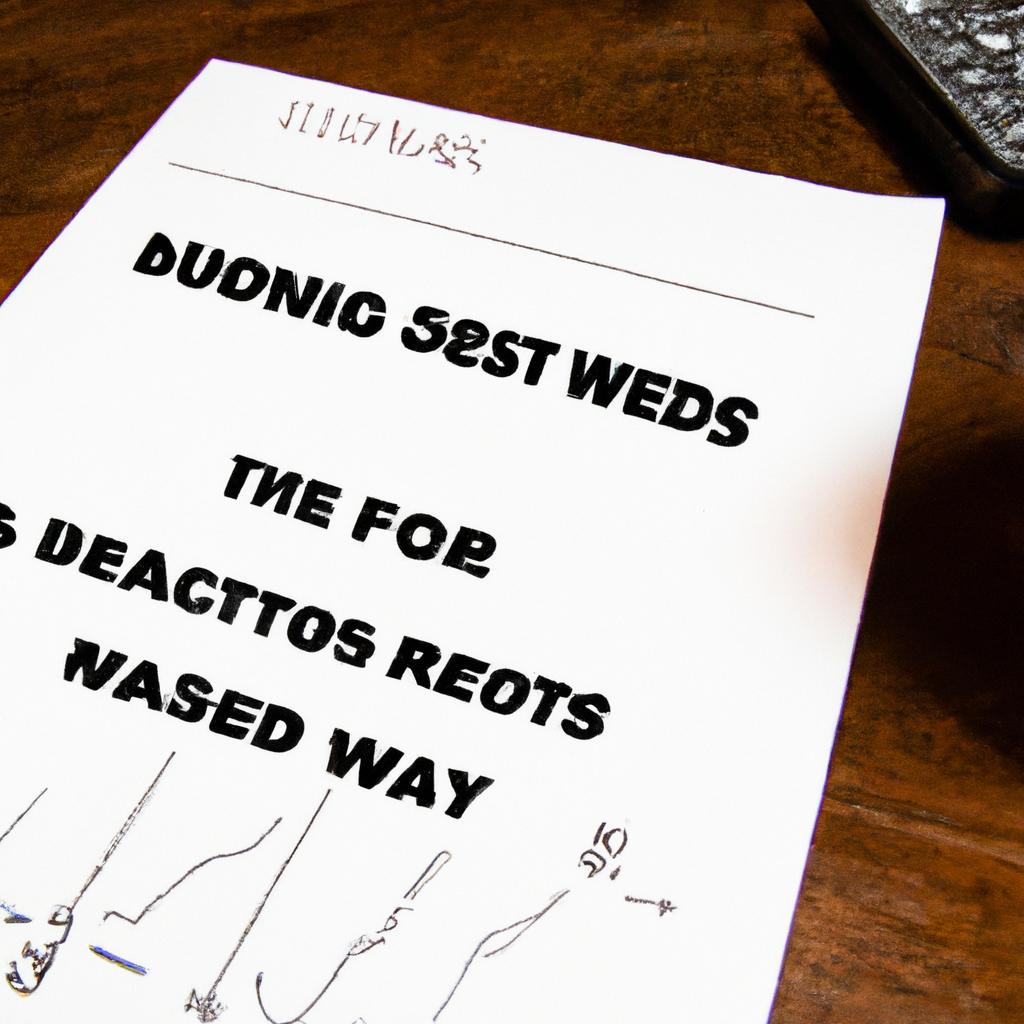 DUONIC S2ST WEDS
THE FOR
S DEACTTOS REOTS
WASED WAY